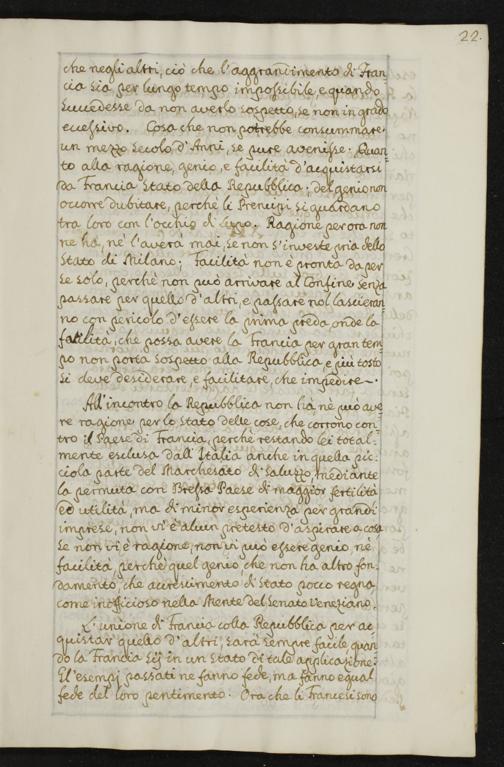 22.
che negli altri, ciò che l'aggrandimento di Fran-
cia sia per lungo tempo impossibile, e quando
succedesse da non averlo sospetto, se non in grado
eccessivo. Cosa che non potrebbe consummare
un mezzo secolo d'Anni, se pure avenisse. Quan-
to alla ragione, genio, e facilità d'acquistarsi
da Francia Stato della Repubblica; del genio non
occorre dubitare, perchè li Prencipi si guardano
tra loro con l'occhio di Ragione per ora non
ne ha, nè l'averà mai, se non s'investe pria dello
Stato di Milano; Facilità non è pronta da per
se solo, perchè non può arrivare al Confine senza
passare per quello d'altri, e passare nol lascieran-
no con pericolo d'essere la prima preda, onde la
facilità, che possa avere la Francia per gran tem-
po non porta sospetto alla Repubblica, e più tosto
si deve desiderare, e facilitare, che impedire.
All'incontro la Repubblica non ha, nè può ave-
re ragione per lo stato delle cose, che corrono con-
tro il Paese di Francia, perchè restando lei total-
mente esclusa dall'Italia anche in quella pic-
ciola parte del Marchesato di Saluzzo, mediante
la permuta con Bressa Paese di maggior fertilità
ed utilità, ma di minor esperienza per grandi
imprese, non vi è alcun pretesto d'aspirare a cosa
se non vi è ragione, non vi può essere genio, nè
facilità, perchè quel genio, che non ha altro fon-
damento, che accrescimento di Stato poco regna,
come inofficioso nella Mente del Senato Veneziano.
L'unione di Francia colla Repubblica per ac-
quistar quello d'altri, sarà sempre facile quan-
do la Francia sij in un Stato di tale applicazione:
El'esempj passati ne fanno fede, ma fanno equal
fede del loro pentimento. Ora che li Francesi sono